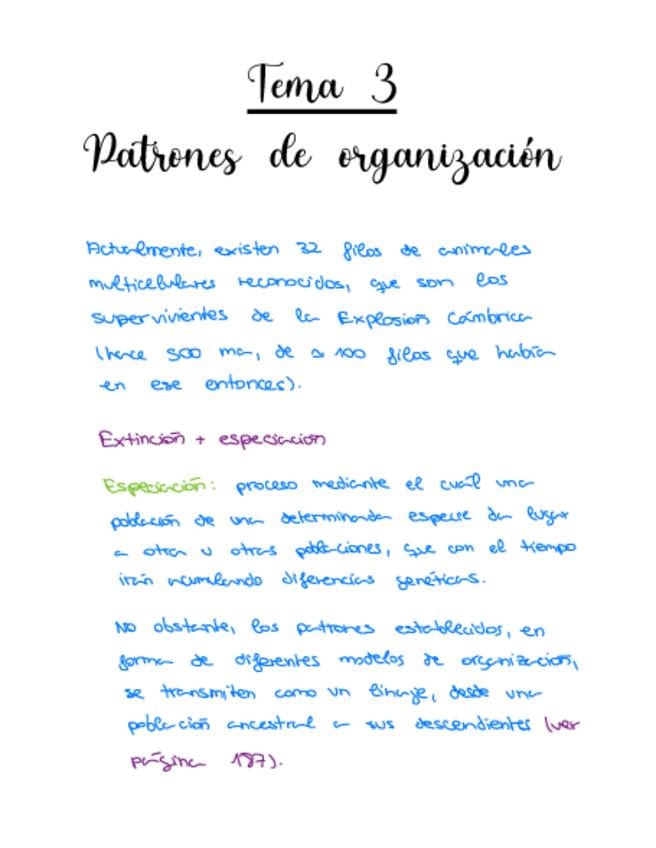 Tema 3
Patrones de organización
Actualmente, existen 32 filos de animales
multicelulares reconocidos, que son los
supervivientes de la Explosión Cámbrica
(hace 500 ma, de ≈ 100 filos que había
en ese entonces).
Extinción + especiación
Especiación: proceso mediante el cual una
población de una determinada especie da lugar
a otra u otras poblaciones, que con el tiempo
irán acumulando diferencias genéticas.
No obstante, los patrones establecidos, en
forma de diferentes modelos de organización,
se transmiten como un linaje, desde una
población ancestral a sus descendientes (ver
página 187).